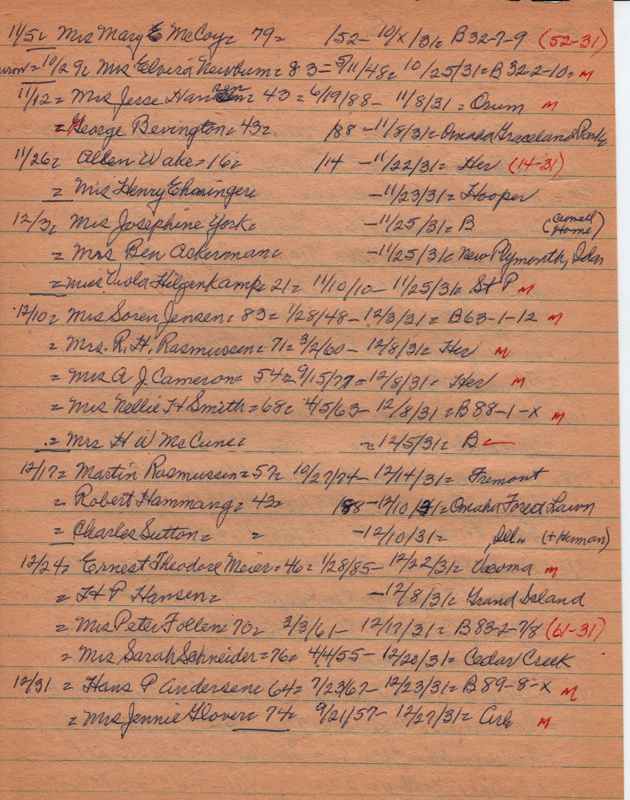 11/5 = Mrs Mary E McCoy = 79 = /52 - 10/x/31 = B 32-7-9 (52-31)
= 10/29 = Mrs Elvira Newbum = 83 = 5/11/48 = 10/25/31 = B 32-2-10 = M
11/12 = Mrs Jesse Hansen = 43 = 6/19/88 - 11/8/31 = Orum M
= George Bevington = 43 = /88 - 11/8/31 = Omaha Graceland Park
11/26 = Allen Wake = 16 = /14 - 11/22/31 = Her (14-31)
= Mrs Henry = - 11/23/31 = Hooper
12/3 = Mrs Josephine York = - 11/25/31 = B (Crowell Home)
= Mrs Ben Ackerman = - 11/25/31 = New Plymouth, Ida
= Miss Viola Hilgenkamp = 21 = 11/10/10 - 11/25/31 = St P M
12/10 = Mrs Soren Jensen = 83 = 1/28/48 - 12/3/31 = B63-1-12 M
= Mrs. R. H. Rasmussen = 71 = 3/2/60 - 12/8/31 = Her M
= Mrs A J Cameron = 54 = 9/15/77 = 12/8/31 = Her M
= Mrs Nellie H Smith = 68 = 4/5/63 - 12/8/31 = B 88-1-x M
= Mrs H W McCune = = 12/5/31 = B
12/17 = Martin Rasmussen = 57 = 10/27/74 - 12/14/31 = Fremont
= Robert Hammang = 43 = /88 - 12/10/31 = Omaha Forest Lawn
= Charles Sutton = = - 12/10/31 = (+ Herman)
12/24 = Ernest Theodore Meier = 46 = 1/28/85 - 12/22/31 = M
= H P Hansen = - 12/8/31 = Grand Island
= Mrs Peter Follen = 70 = 3/3/61 - 12/17/31 = B 83-2-7/8 (61-31)
= Mrs Sarah Schneider = 76 = 4/4/55 - 12/20/31 = Cedar Creek
12/31 = Hans P Andersen = 64 = 7/23/67 - 12/23/31 = B 89-8-x M
= Mrs Jennie Glover = 74 = 9/21/57 - 12/27/31 = Arl M